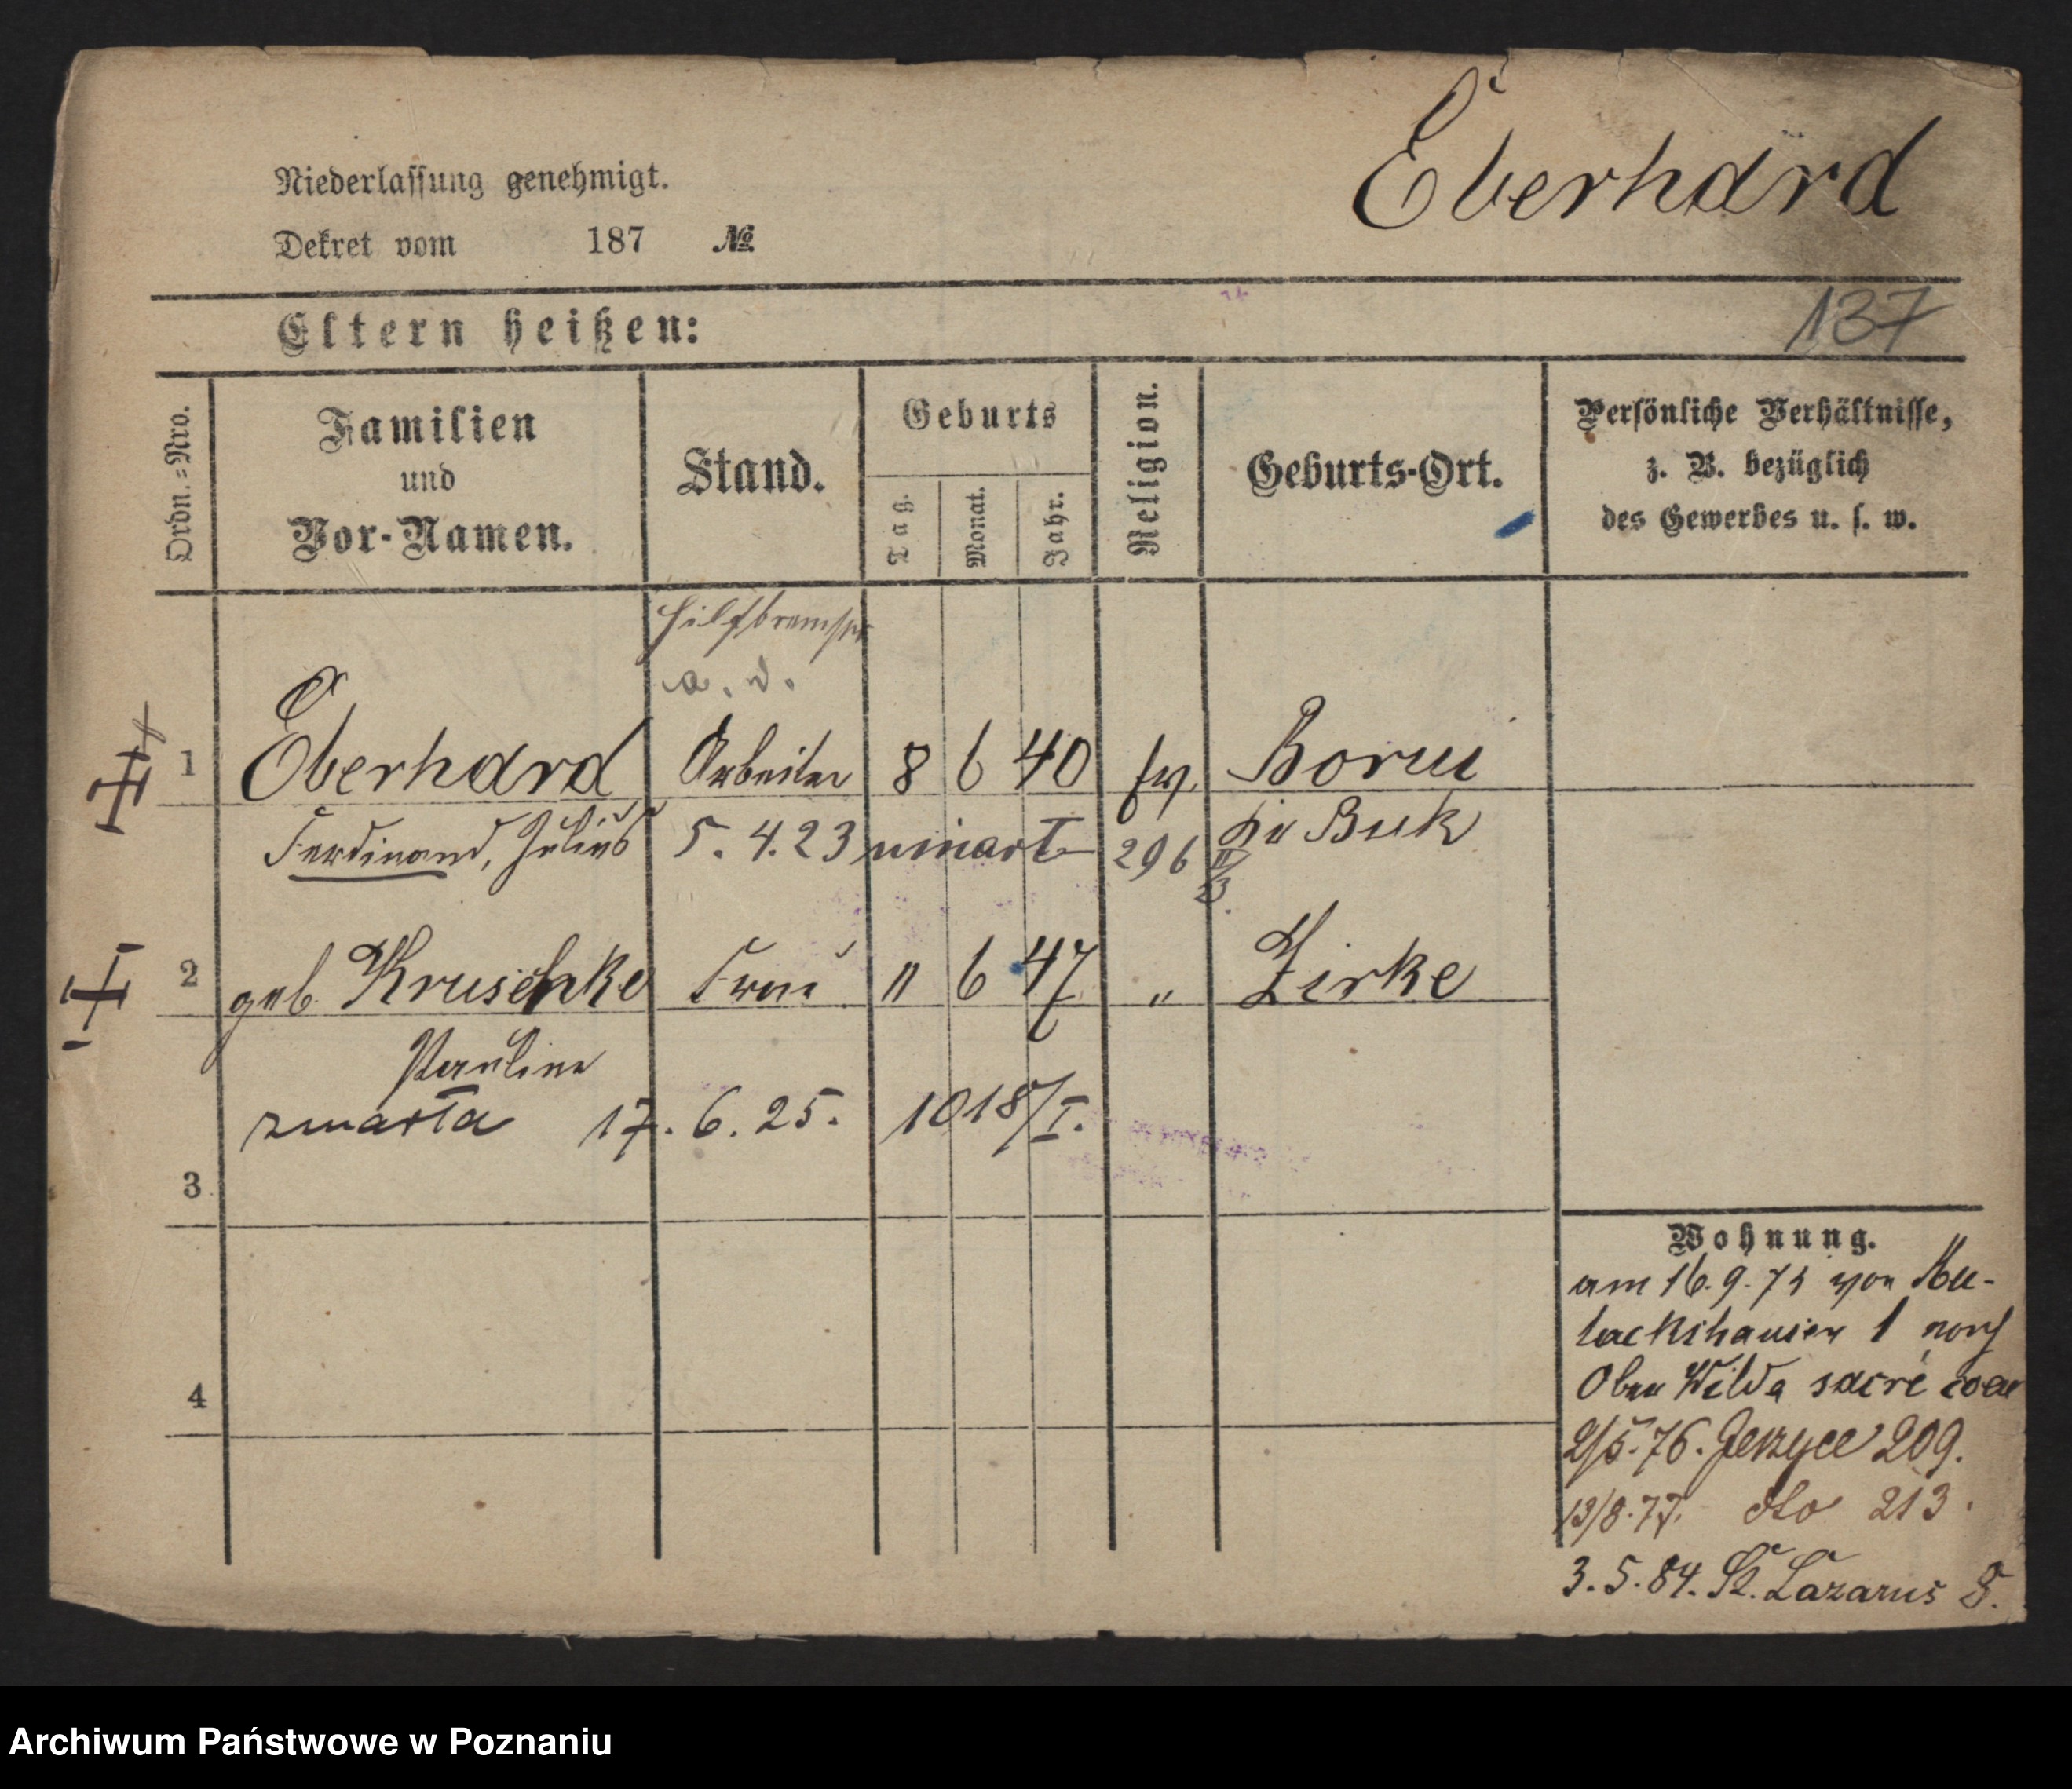 Eberhard
Niederlassung genehmigt.
Dekret vom 187 №
137
Eltern heißen:
Ordn.=Nro.
Familien
und
Vor-Namen.
Stand.
Geburts
Tag.
Monat.
Jahr.
Religion.
Geburts-Ort.
Persönliche Verhältnisse,
z. B. bezüglich
des Gewerbes u. s. w.
Hilfsbremser
a. D.
1 Eberhard Arbeiter 8 6 40 ev. Borui
Ferdinand, Julius 5. 4. 23 umarł 296 Kr Buk
2 geb Kruschke Frau " 6 47 " Zirke
Pauline
zmarła 17. 6. 25. 1018/I.
3
4
Wohnung.
am 16. 9. 75 von
1 nach
Ober Wilda sacré coeur
2/5. 76. Jerzyce 209.
13/8. 77. dto 213.
3. 5. 84. St. Lazarus 8.
Archiwum Państwowe w Poznaniu